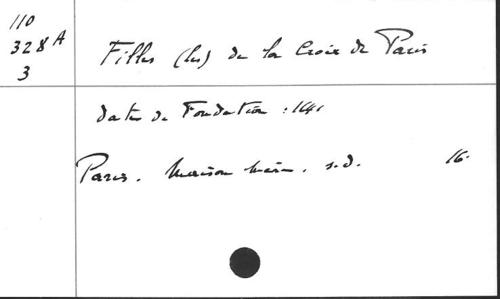 110
328 A
3
Filles (les) de la Croix de Paris
dates de Fondation : 1641
Paris. Maison mère. s.d. 16.